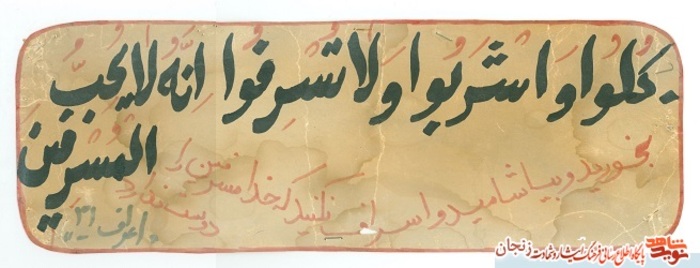 كُلُوا وَ اشْرَبُوا وَ لاٰ تُسْرِفُوا اِنَّهُ لا يُحِبُّ
المُسْرِفينَ
بخورید و بیاشامید و اسراف نکنید که خدا مسرفین را
دوست ندارد
اعراف ٣١
نوید شاهد
پایگاه اطلاع رسانی فرهنگ ایثار و شهادت زنجان